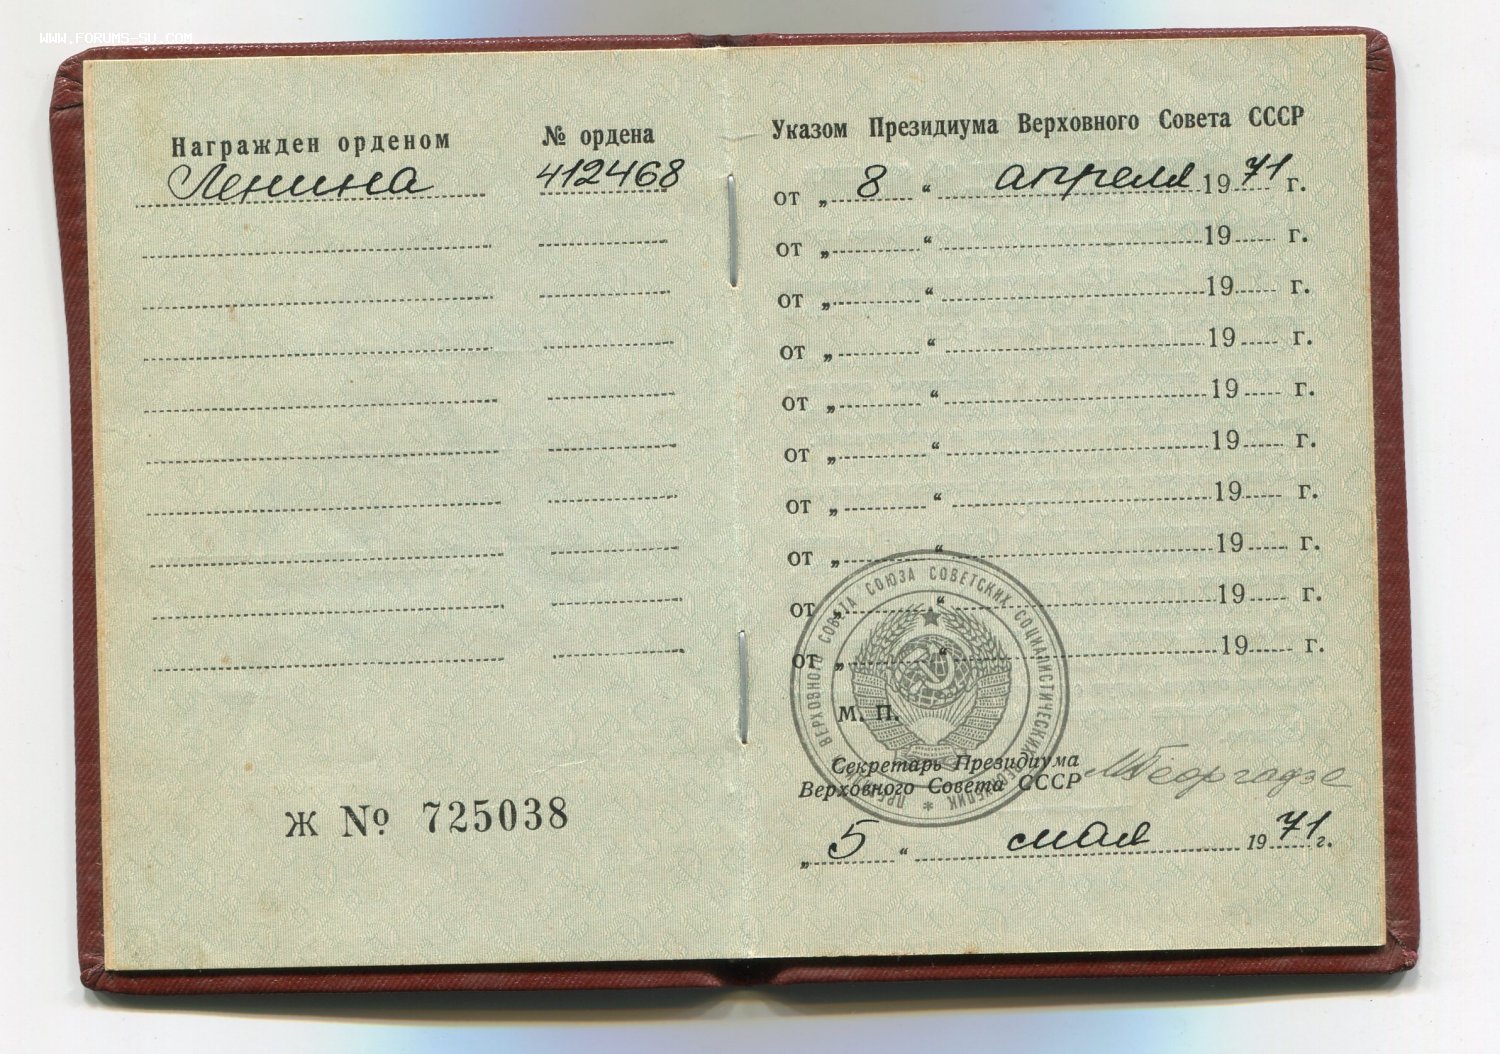 WWW.FORUMS-SU.COM
Награжден орденом № ордена
Ленина 412468
Ж № 725038
Указом Президиума Верховного Совета СССР
от „ 8 “ апреля 1971 г.
от „ “ 19 г.
от „ “ 19 г.
от „ “ 19 г.
от „ “ 19 г.
от „ “ 19 г.
от „ “ 19 г.
от „ “ 19 г.
от „ “ 19 г.
от „ “ 19 г.
ПРЕЗИДИУМ ВЕРХОВНОГО СОВЕТА СОЮЗА СОВЕТСКИХ СОЦИАЛИСТИЧЕСКИХ РЕСПУБЛИК *
М. П.
Секретарь Президиума
Верховного Совета СССР МГеоргадзе
„ 5 “ мая 1971 г.